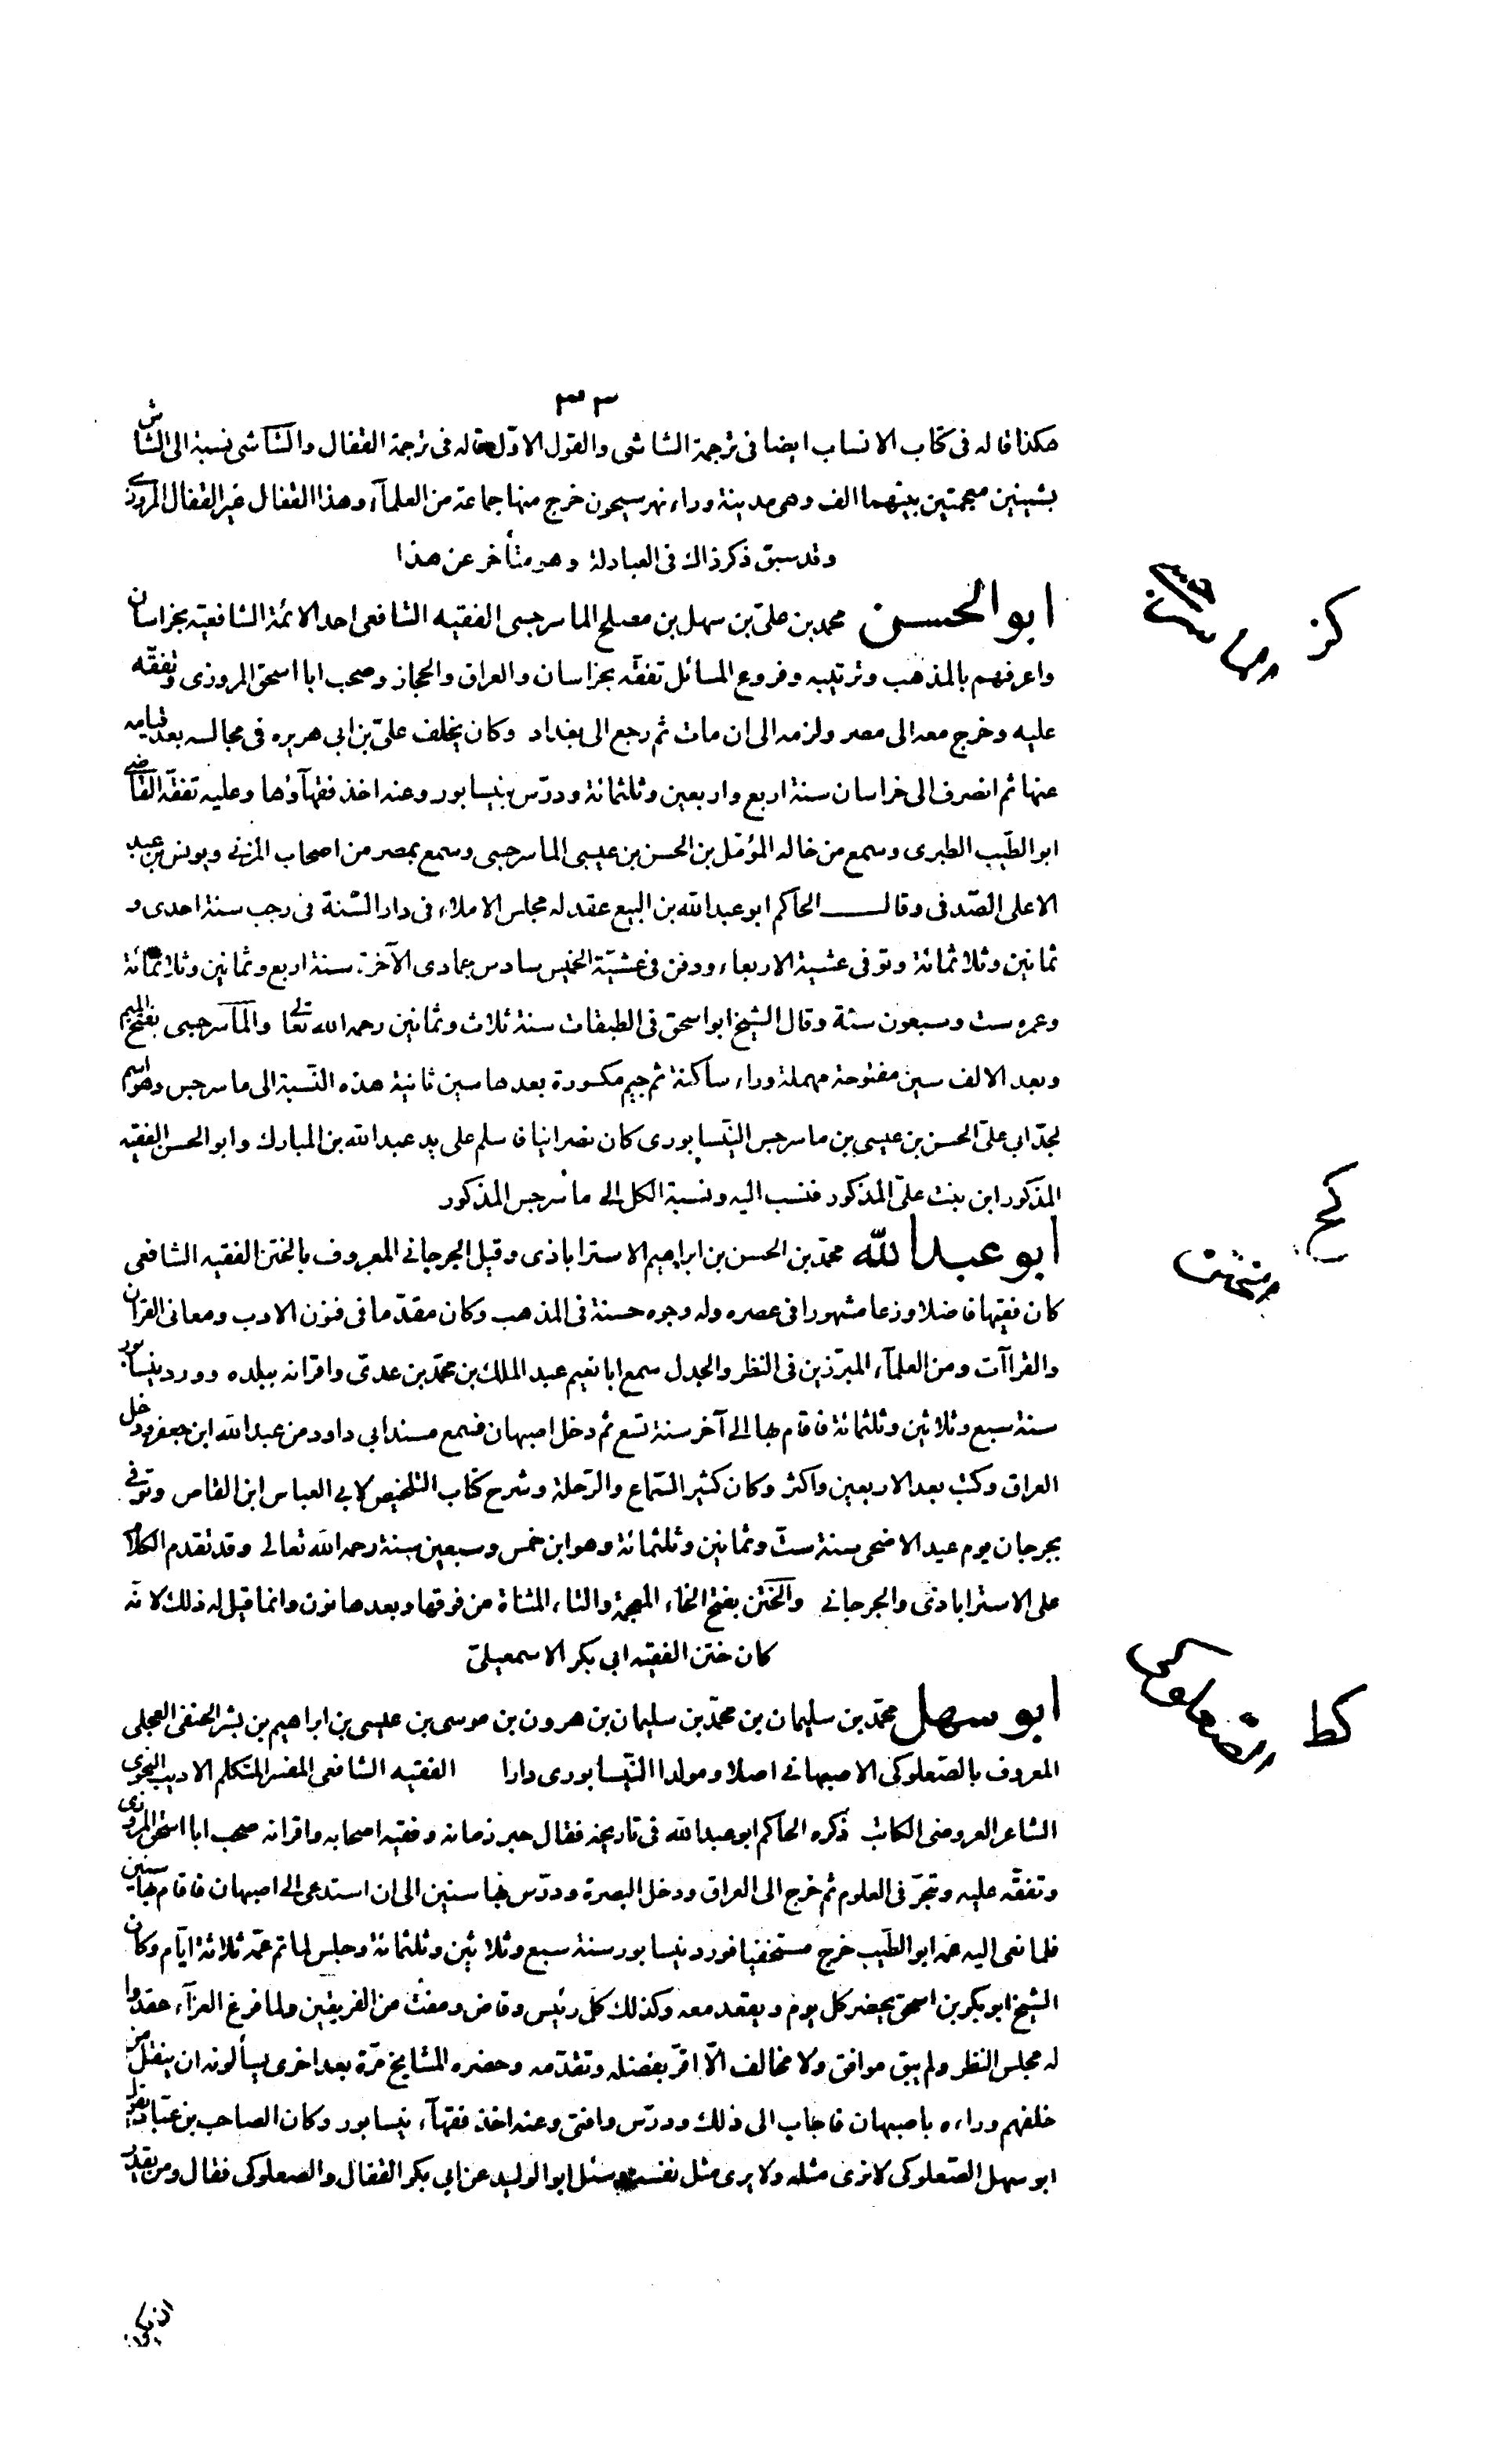 ٣٣
هكذا قاله فى كتاب الانساب ايضا فى ترجمة الشاشى والقول الاوّل قاله فى ترجمة القفال والشاشى نسبة الى الشاش
بشينين معجمتين بينهما الف وهى مدينة وراء نهر سيحون خرج منها جماعة من العلمآء وهذا القفال غير القفال المروزى
وقد سبق ذكر ذاك فى العبادلة وهو متأخر عن هذا
ابو الحسن محمد بن علىّ بن سهل بن مصلح الماسرجسى الفقيه الشافعى احد الائمة الشافعيّة بخراسان
واعرفهم بالمذهب وترتيبه وفروع المسائل تفقّه بخراسان والعراق والحجاز وصحب ابا اسحق المروزى وتفقّه
عليه وخرج معه الى مصر ولزمه الى ان مات ثم رجع الى بغداد وكان يخلف علىّ بن ابى هريره فى مجالسه بعد قيامه
عنها ثم انصرف الى خراسان سنة اربع واربعين وثلثمائة ودرّس بنيسابور وعنه اخذ فقهآؤها وعليه تفقّه القاضى
ابو الطّيب الطبرى وسمع من خاله المؤمّل بن الحسن بن عيسى الماسرجسى وسمع بمصر من اصحاب المزنى ويونس بن عبد
الاعلى الصّدفى وقال الحاكم ابو عبد الله بن البيع عقد له مجلس الاملاء فى دار السّنة فى رجب سنة احدى و
ثمانين وثلاثمائة وتوفى عشية الاربعاء ودفن فى عشيّة الخميس سادس جمادى الآخرة سنة اربع وثمانين وثلاثمائة
وعمره ست وسبعون سنة وقال الشيخ ابو اسحق فى الطبقات سنة ثلاث وثمانين رحمه الله تعالى والماسرجسى بفتح الميم
وبعد الالف سين مفتوحة مهملة وراء ساكنة ثم جيم مكسورة بعدها سين ثانية هذه النّسبة الى ماسرجس وهو اسم
لجدّ ابى علىّ الحسن بن عيسى بن ماسرجس النيّسابورى كان نصرانيا فاسلم على يد عبد الله بن المبارك وابو الحسن الفقيه
المذكور ابن بنت علىّ المذكور فنسب اليه ونسبة الكل الى ماسرجس المذكور
ابو عبد الله محمّد بن الحسن بن ابراهيم الاستراباذى وقيل الجرجانى المعروف بالختن الفقيه الشافعى
كان فقيها فاضلا ورعا مشهورا فى عصره وله وجوه حسنة فى المذهب وكان مقدّما فى فنون الادب ومعانى القران
والقراآت ومن العلمآء المبرّزين فى النظر والجدل سمع ابا نعيم عبد الملك بن محمّد بن عدىّ واقرانه ببلده وورد نيسابور
سنة سبع وثلاثين وثلثمائة فاقام بها الى آخر سنة تسع ثم دخل اصبهان فسمع مسند ابى داود من عبد الله ابن جعفر ودخل
العراق وكتب بعد الاربعين واكثر وكان كثير السّماع والرّحلة وشرح كتاب التلخيص لابى العباس ابن القاص وتوفى
بجرجان يوم عيد الاضحى سنة ستّ وثمانين وثلثمائة وهو ابن خمس وسبعين سنة رحمه الله تعالى وقد تقدم الكلام
على الاستراباذى والجرجانى والختن بفتح الخاء المعجمة والتاء المثناة من فوقها وبعدها نون وانما قيل له ذلك لانّه
كان ختن الفقيه ابى بكر الاسمعيلىّ
ابو سهل محمّد بن سليمان بن محمّد بن سليمان بن هرون بن موسى بن عيسى بن ابراهيم بن بشر الحنفى العجلى
المعروف بالصّعلوكى الاصبهانى اصلا ومولدا النيّسابورى دارا الفقيه الشافعى المفسر المتكلم الاديب النحوى
الشاعر العروضى الكاتب ذكره الحاكم ابو عبد الله فى تاريخه فقال حبر زمانه وفقيه اصحابه واقرانه صحب ابا اسحق المروزى
وتفقّه عليه وتبحّر فى العلوم ثم خرج الى العراق ودخل البصرة ودرّس بها سنين الى ان استدعى الى اصبهان فاقام بها سنين
فلما نعى اليه عمّه ابو الطّيب خرج مستخفيا فورد نيسابور سنة سبع وثلاثين وثلثمائة وجلس لماتم عمّه ثلاثة ايّام وكان
الشيخ ابو بكر بن اسحق يحضر كل يوم ويقعد معه وكذلك كلّ رئيس وقاض ومفت من الفريقين ولما فرغ العزآء عقدوا
له مجلس النظر ولم يبق موافق ولا مخالف الّا اقرّ بفضله وتقدّمه وحضره المشايخ مرّة بعد اخرى يسألونه ان ينقل من
خلفهم وراءه باصبهان فاجاب الى ذلك ودرّس وافتى وعنه اخذ فقهآء نيسابور وكان الصاحب بن عبّاد يقول
ابو سهل الصّعلوكى لا نرى مثله ولا يرى مثل نفسه وسئل ابو الوليد عن ابى بكر القفال والصعلوكى فقال ومن يقدر
كز
الماسرجسى
كح
الختن
كط
الصّعلوكى